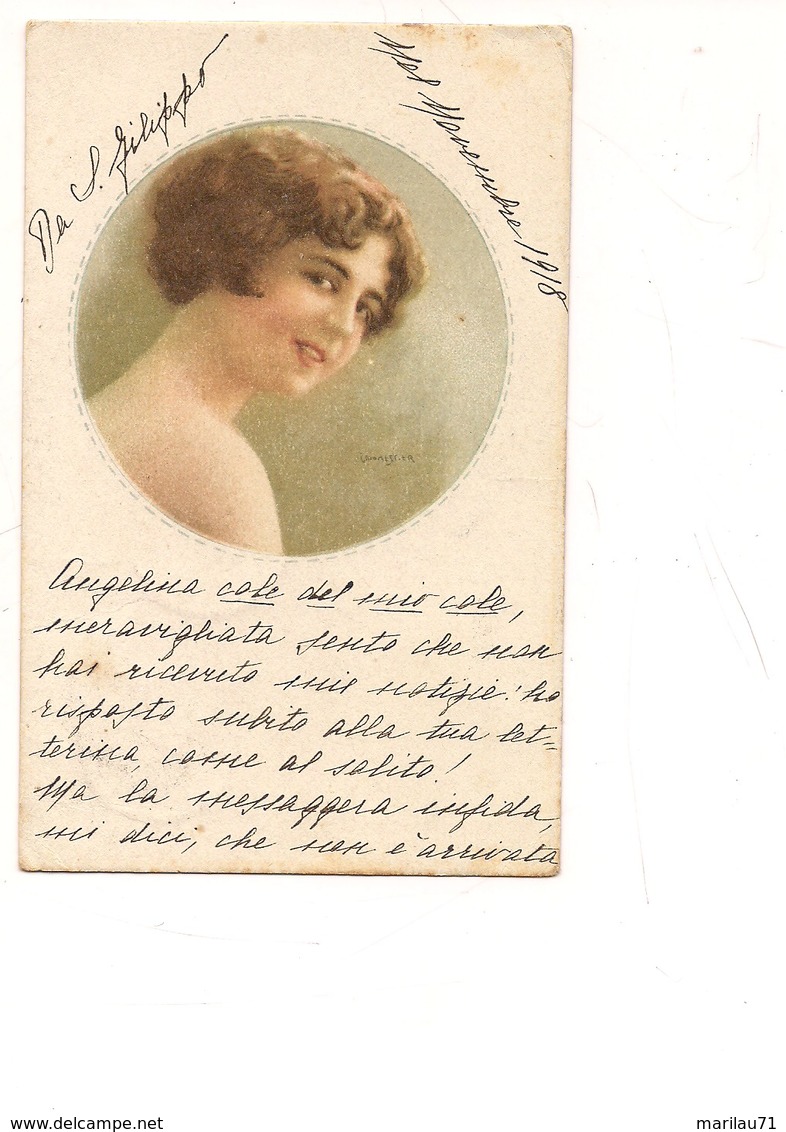 Da S. Filippo
Novembre 1918
Angelina cole del mio cole,
meravigliata sento che non
hai ricevuto mie notizie! ho
risposto subito alla tua let=
terina, come al solito!
Ma la messaggera infida,
mi dici, che non è arrivata
www.delcampe.net
marilau71